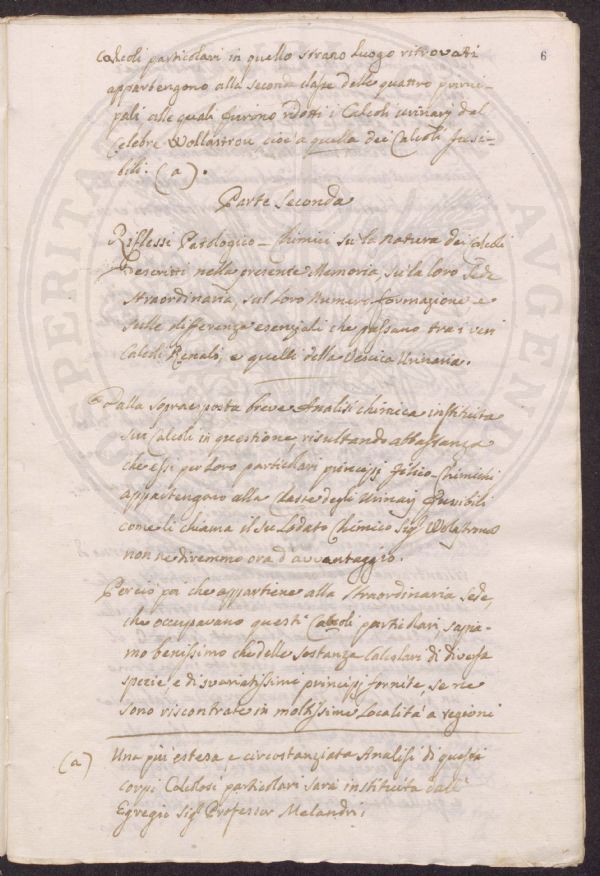 6
Calcoli particolari in quello strano luogo ritrovati
appartengono alla seconda classe delle quattro princi-
pali alle quali furono ridotti i Calcoli urinarj dal
celebre Wollastrou cioè a quella dei Calcoli fusi-
bili. (a).
Parte Seconda
Riflessi Patologico-Chimici su la natura dei Calcoli
Descritti nella presente Memoria, su la loro Sede
straordinaria, sul loro numero formazione e
sulle differenze esenziali che passano tra i veri
Calcoli Renali, e quelli della Vescica Urinaria.
Dalla sopraesposta breve Analisi chimica instituita
sui Calcoli in questione risultando abbastanza
che essi per loro particolari principj fisico-chimici
appartengono alla Classe degli Urinarj fusibili
come li chiama il su Lodato Chimico Sigr Wolastrous
non ne diremmo ora d'avvantaggio.
Perciò poi che appartiene alla straordinaria Sede,
che occupavano questi Calcoli particolari, sapia-
mo benissimo che delle sostanze Calcolari di diversa
spezie, e di svariatissimi principj fornite, se ne
sono riscontrate in moltissime Località e regioni
(a) Una più estesa e circostanziata Analisi di questi
corpi Calcolosi particolari sarà instituita dall'
Egregio Sigr Professor Melandri
PROSPERITATI AVGENDAE